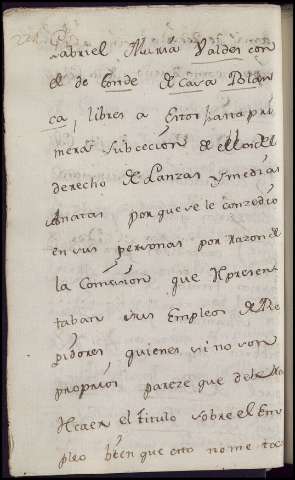 Gabriel Maria Valdes con
el de Conde de Casa Blan
ca, libres a estos hasta pri
mera subcecion de ellos del
derecho de Lanzas y medias
annatas porque se le conzedio
en sus personas por razon de
la Comision que representa
taban sus Empleos de Re
gidores quienes si no son
proprios pareze que debe
recaer el titulo sobre el Em
pleo bien que esto no me toca